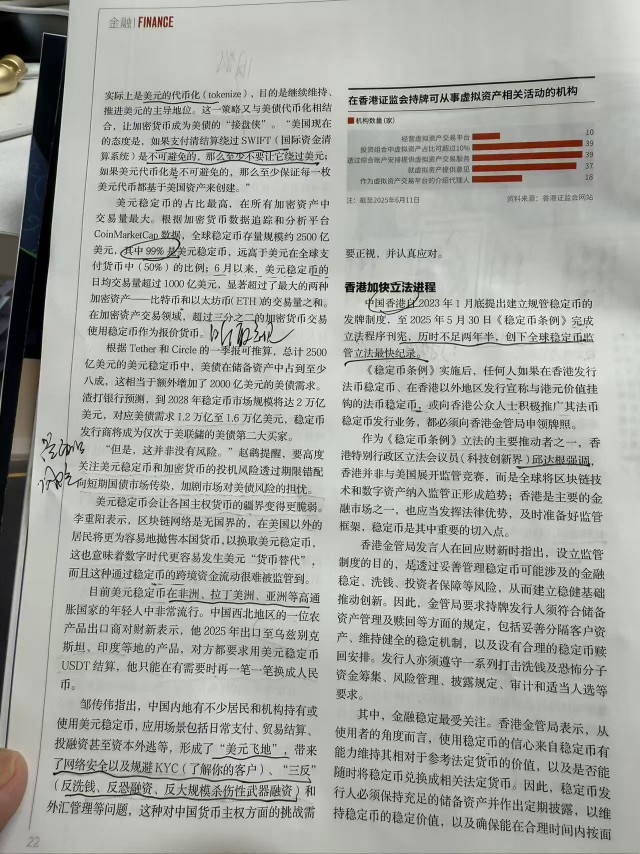 金融 FINANCE
实际上是美元的代币化（tokenize），目的是继续维持、
推进美元的主导地位。这一策略又与美债代币化相结
合，让加密货币成为美债的“接盘侠”。“美国现在
的态度是，如果支付清结算绕过SWIFT（国际资金清
算系统）是不可避免的，那么至少不要让它绕过美元；
如果美元代币化是不可避免的，那么至少保证每一枚
美元代币都基于美国资产来创建。”
美元稳定币的占比最高，在所有加密资产中
交易量最大。根据加密货币数据追踪和分析平台
CoinMarketCap 数据，全球稳定币存量规模约2500亿
美元，其中99%是美元稳定币，远高于美元在全球支
付货币中（50%）的比例；6月以来，美元稳定币的
日均交易量超过1000亿美元，显著超过了最大的两种
加密资产——比特币和以太坊币（ETH）的交易量之和。
在加密资产交易领域，超过三分之二的加密货币交易
使用稳定币作为报价货币。
根据 Tether 和 Circle 的一季报可推算，总计2500
亿美元的美元稳定币中，美债在储备资产中占到至少
八成，这相当于额外增加了2000亿美元的美债需求。
渣打银行预测，到2028年稳定币市场规模将达2万亿
美元，对应美债需求1.2万亿至1.6万亿美元，稳定币
发行商将成为仅次于美联储的美债第二大买家。
“但是，这并非没有风险。”赵鹞提醒，要高度
关注美元稳定币和加密货币的投机风险透过期限错配
向短期国债市场传染，加剧市场对美债风险的担忧。
美元稳定币会让各国主权货币的疆界变得更脆弱。
李重阳表示，区块链网络是无国界的，在美国以外的
居民将更为容易地抛售本国货币，以换取美元稳定币，
这也意味着数字时代更容易发生美元“货币替代”，
而且这种通过稳定币的跨境资金流动很难被监管到。
目前美元稳定币在非洲、拉丁美洲、亚洲等高通
胀国家的年轻人中非常流行。中国西北地区的一位农
产品出口商对财新表示，他2025年出口至乌兹别克
斯坦、印度等地的产品，对方都要求用美元稳定币
USDT 结算，他只能在有需要时再一笔一笔换成人民
币。
邹传伟指出，中国内地有不少居民和机构持有或
使用美元稳定币，应用场景包括日常支付、贸易结算、
投融资甚至资本外逃等，形成了“美元飞地”，带来
了网络安全以及规避KYC（了解你的客户）、“三反”
（反洗钱、反恐融资、反大规模杀伤性武器融资）和
外汇管理等问题，这种对中国货币主权方面的挑战需
22
在香港证监会持牌可从事虚拟资产相关活动的机构
机构数量（家）
经营虚拟资产交易平台 10
投资组合中虚拟资产占比可超过10% 39
透过综合账户安排提供虚拟资产交易服务 39
就虚拟资产提供意见 37
作为虚拟资产交易平台的介绍代理人 18
注：截至2025年6月11日 资料来源：香港证监会网站
要正视，并认真应对。
香港加快立法进程
中国香港自2023年1月底提出建立规管稳定币的
发牌制度，至2025年5月30日《稳定币条例》完成
立法程序刊宪，历时不足两年半，创下全球稳定币监
管立法最快纪录。
《稳定币条例》实施后，任何人如果在香港发行
法币稳定币、在香港以外地区发行宣称与港元价值挂
钩的法币稳定币，或向香港公众人士积极推广其法币
稳定币发行业务，都必须向香港金管局申领牌照。
作为《稳定币条例》立法的主要推动者之一，香
港特别行政区立法会议员（科技创新界）邱达根强调，
香港并非与美国展开监管竞赛，而是全球将区块链技
术和数字资产纳入监管正形成趋势；香港是主要的金
融市场之一，也应当发挥法律优势，及时准备好监管
框架，稳定币是其中重要的切入点。
香港金管局发言人在回应财新时指出，设立监管
制度的目的，是透过妥善管理稳定币可能涉及的金融
稳定、洗钱、投资者保障等风险，从而建立稳健基础
推动创新。因此，金管局要求持牌发行人须符合储备
资产管理及赎回等方面的规定，包括妥善分隔客户资
产、维持健全的稳定机制，以及设有合理的稳定币赎
回安排。发行人亦须遵守一系列打击洗钱及恐怖分子
资金筹集、风险管理、披露规定、审计和适当人选等
要求。
其中，金融稳定最受关注。香港金管局表示，从
使用者的角度而言，使用稳定币的信心来自稳定币有
能力维持其相对于参考法定货币的价值，以及是否能
随时将稳定币兑换成相关法定货币。因此，稳定币发
行人必须保持充足的储备资产并作出定期披露，以维
持稳定币的稳定价值，以及确保能在合理时间内按面